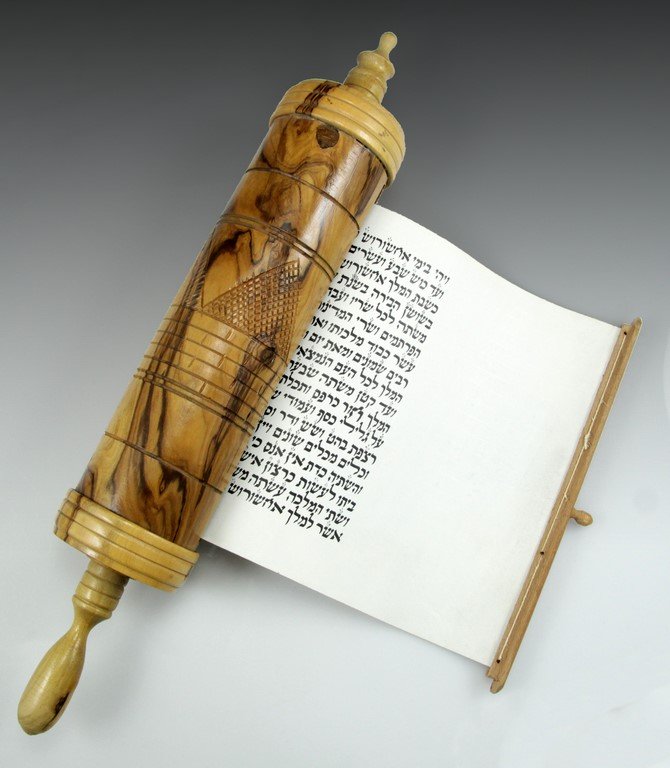 ויהי בימי אחשורוש
ועד כוש שבע ועשרים
כשבת המלך אחשורוש
בשושן הבירה בשנת
משתה לכל שריו
הפרתמים ושרי
עשר כבוד מלכותו
רבים שמונים ומאת יום
המלך לכל העם
ועד קטן משתה
המלך חור כרפס ותכלת
על גלילי כסף ועמודי
רצפת בהט ושש ודר
וכלים מכלים שונים
והשתיה כדת אין אנס
ביתו לעשות כרצון איש
ושתי המלכה עשתה
אשר למלך אחשורוש